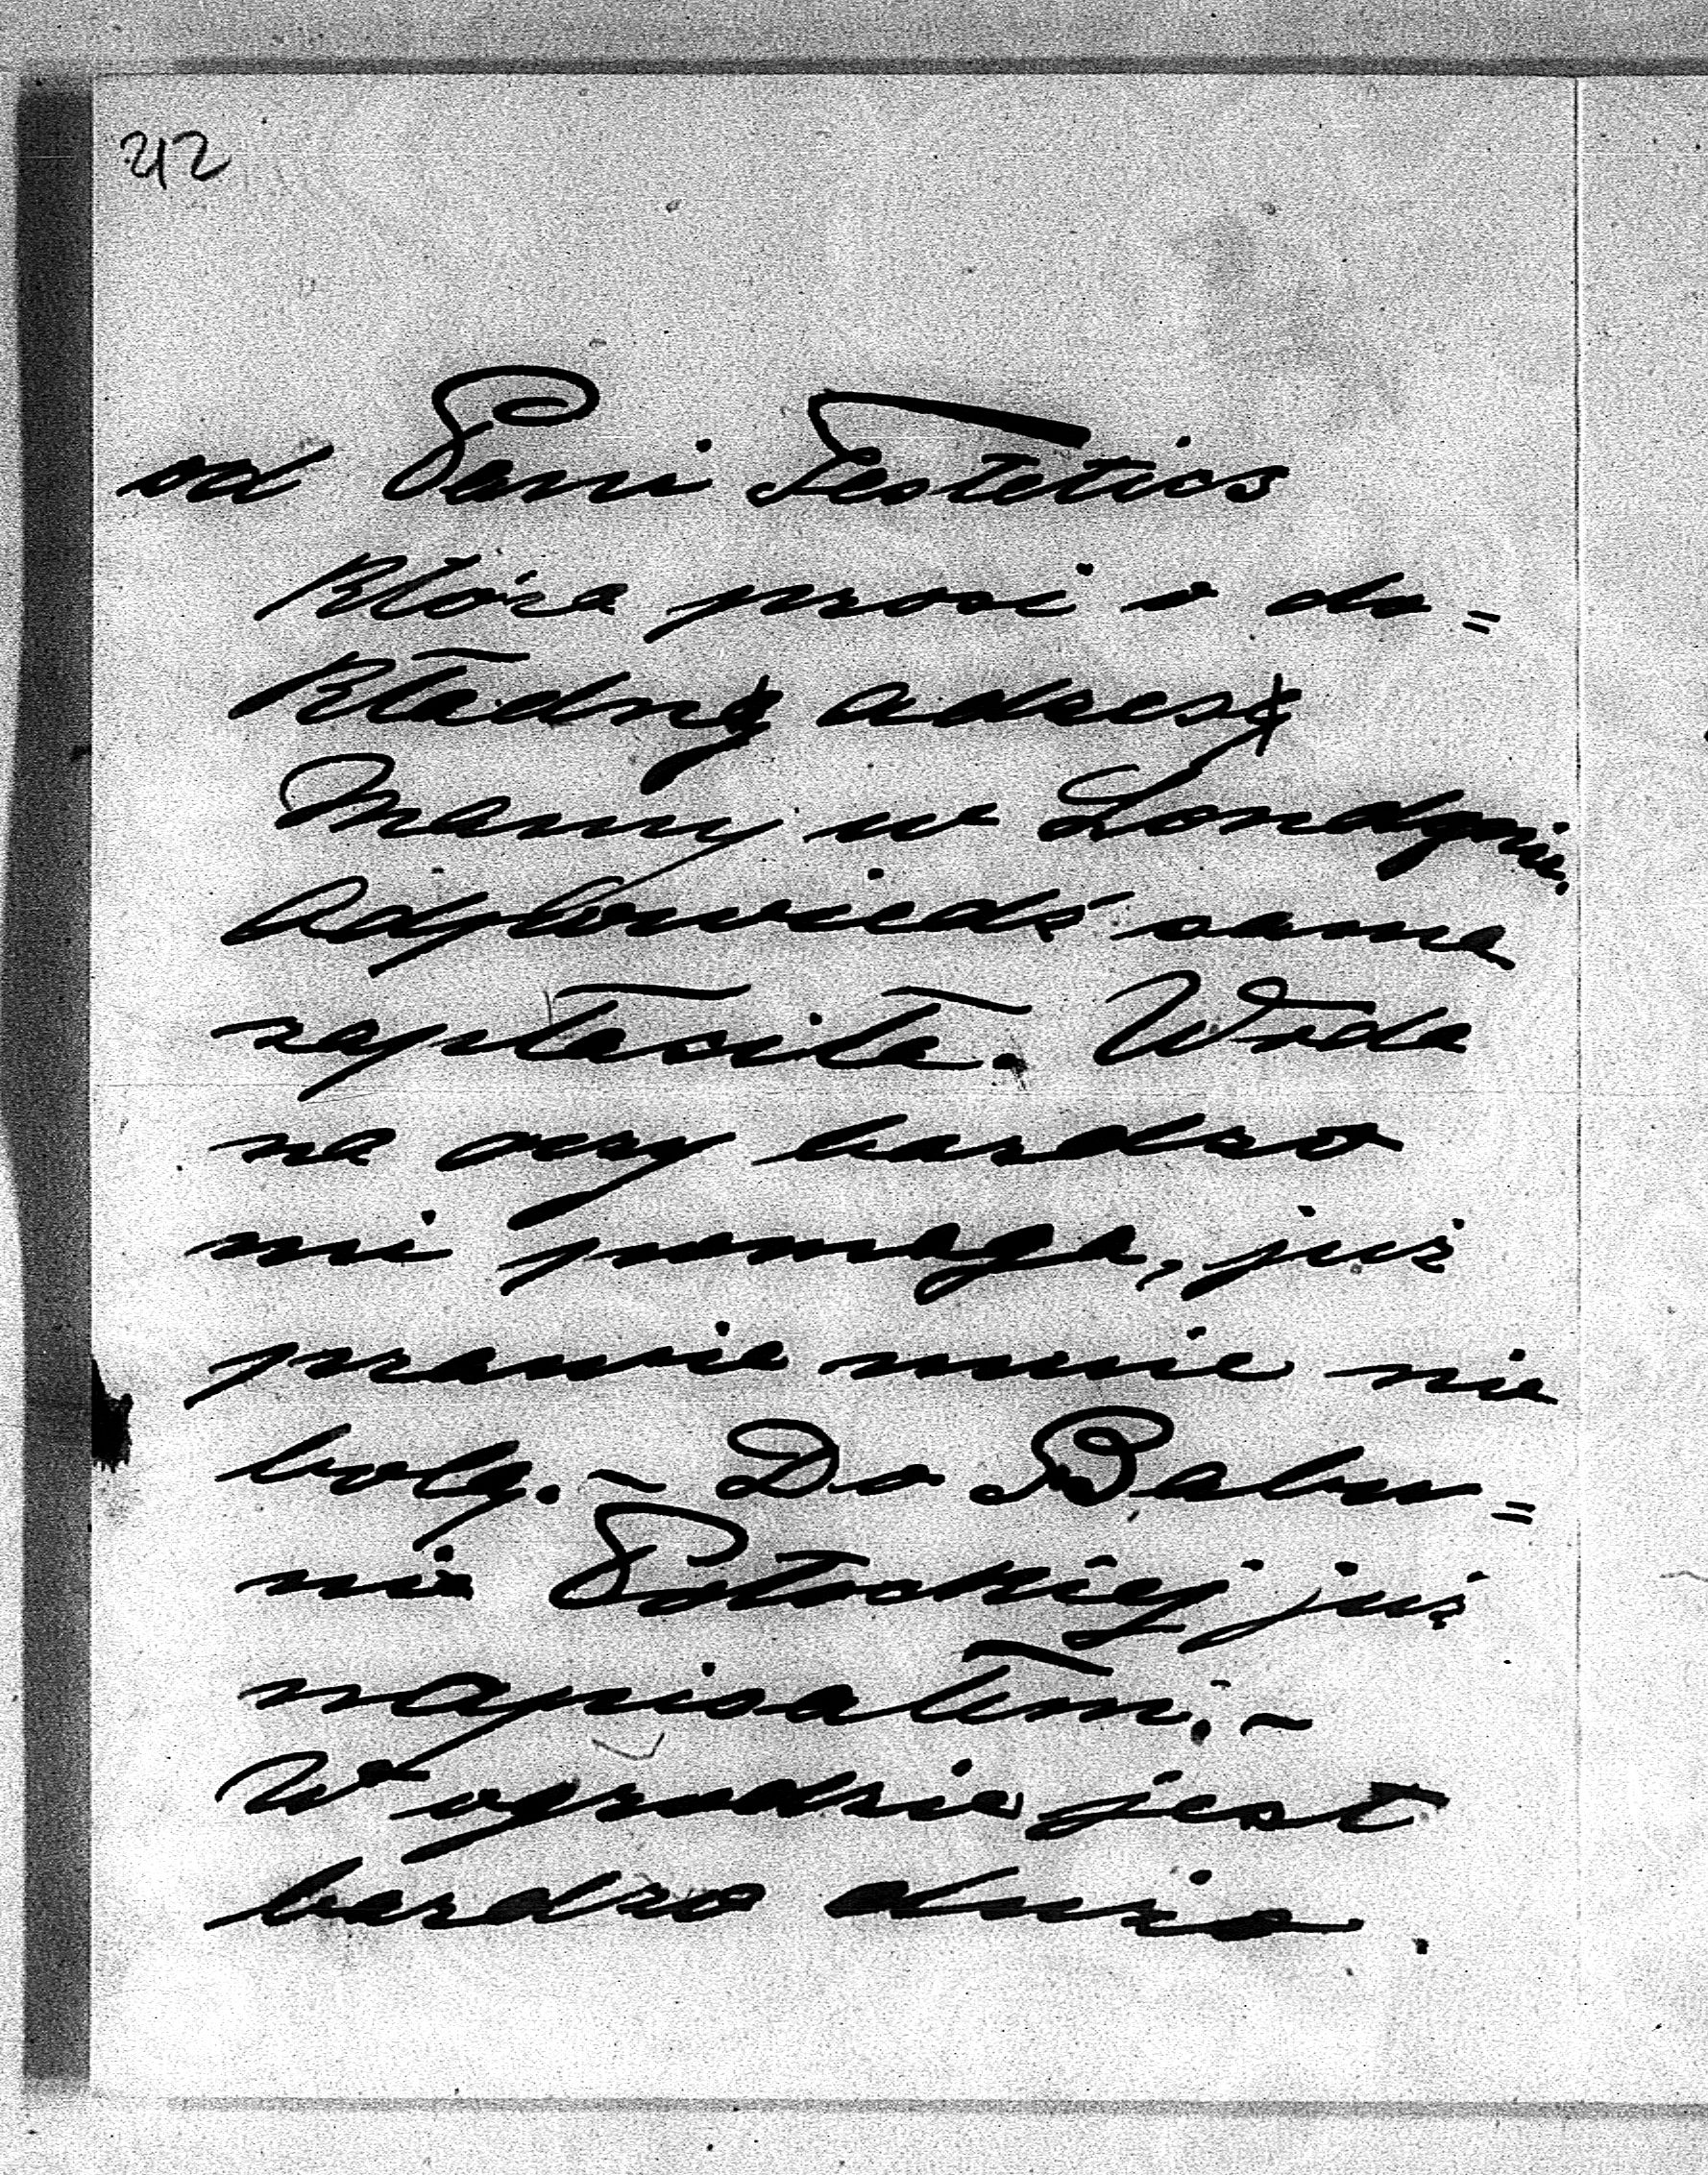 242
od Pani Festetics
która prosi o do=
kładny adres
Mamy w Londynie.
Odpowiedź sama
zapłaciła. Woda
na oczy bardzo
mi pomaga, już
prawie mnie nie
bolą. ~ Do Babu=
ni Potockiej już
napisałem. ~
W ogrodzie jest
bardzo dużo